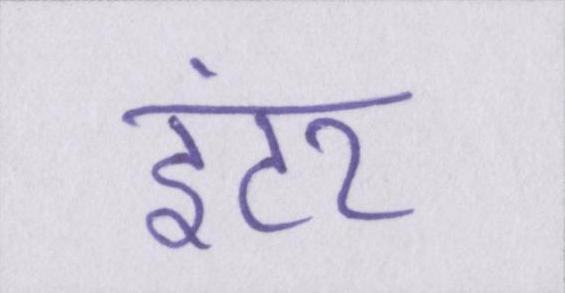 इंटर